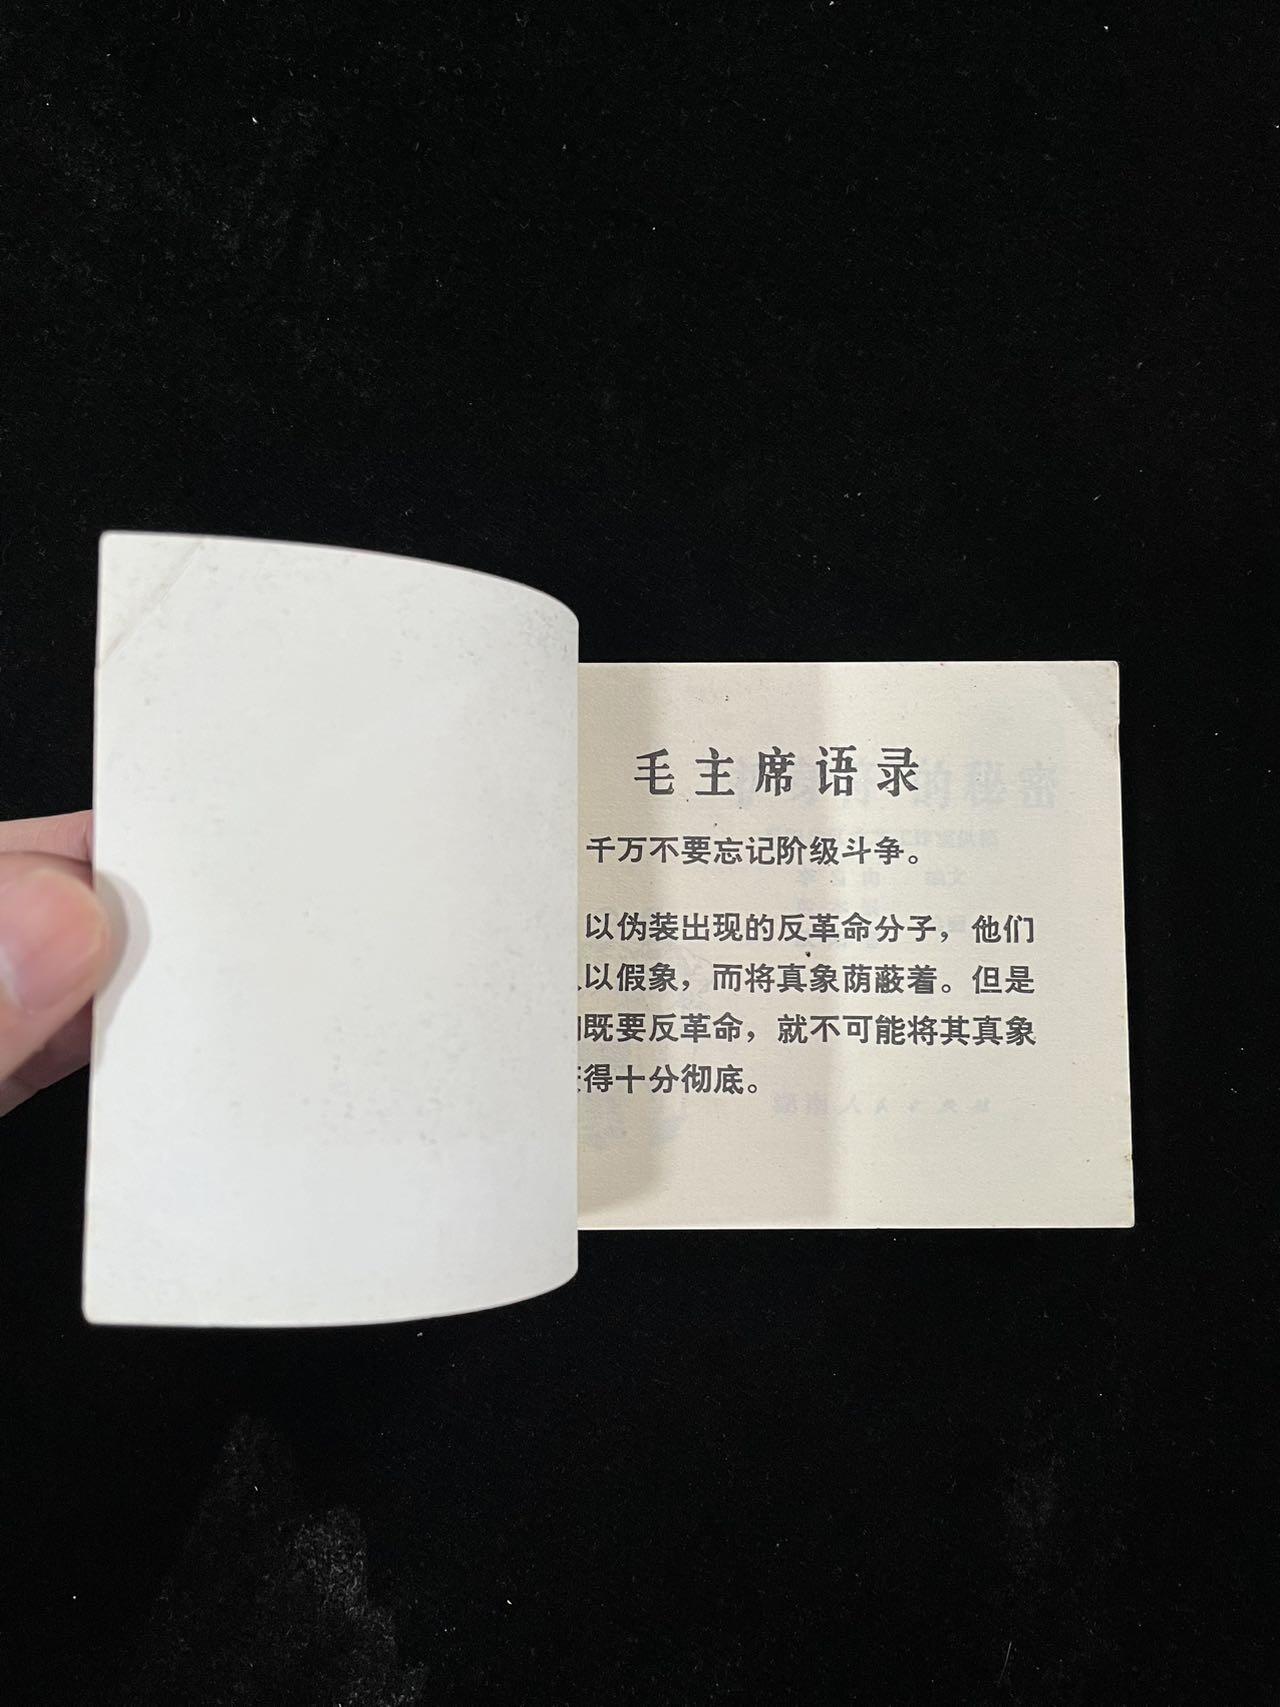 毛主席语录
千万不要忘记阶级斗争。
以伪装出现的反革命分子，他们
以假象，而将真象荫蔽着。但是
既要反革命，就不可能将其真象
得十分彻底。
的秘密